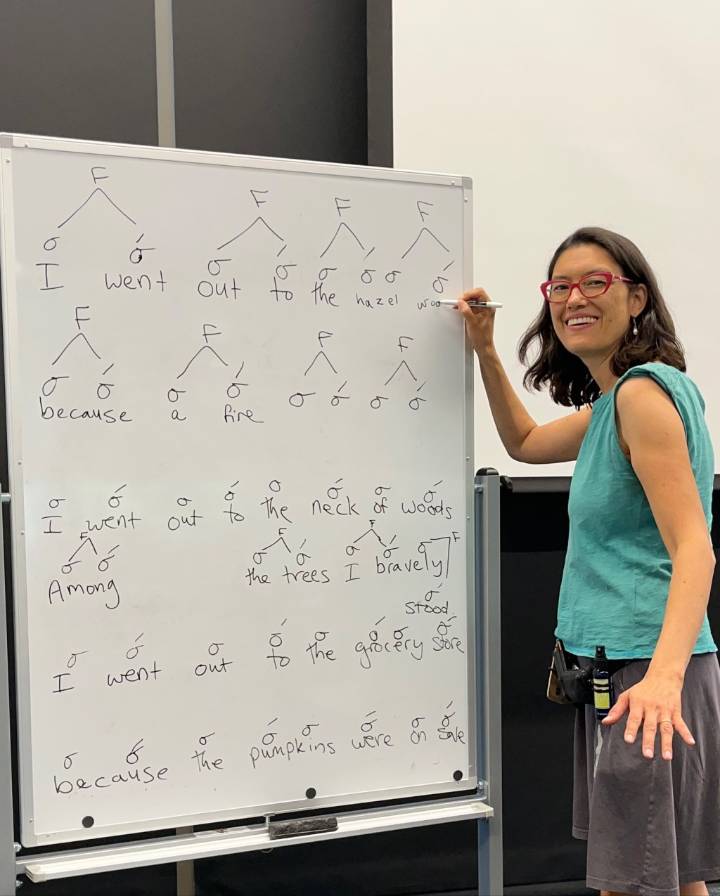 F F F F
σ σ́ σ σ́ σ σ́ σ σ́
I went out to the hazel woo
F F F F
σ σ́ σ σ́ σ σ́ σ σ́
because a fire
σ σ́ σ σ́ σ σ́ σ σ́
I went out to the neck of woods
F F F F
σ σ́ σ σ́ σ σ́ σ
Among the trees I bravely
σ́
stood
σ σ́ σ σ́ σ σ́ σ σ́
I went out to the grocery store
σ σ́ σ σ́ σ σ́ σ σ́
because the pumpkins were on